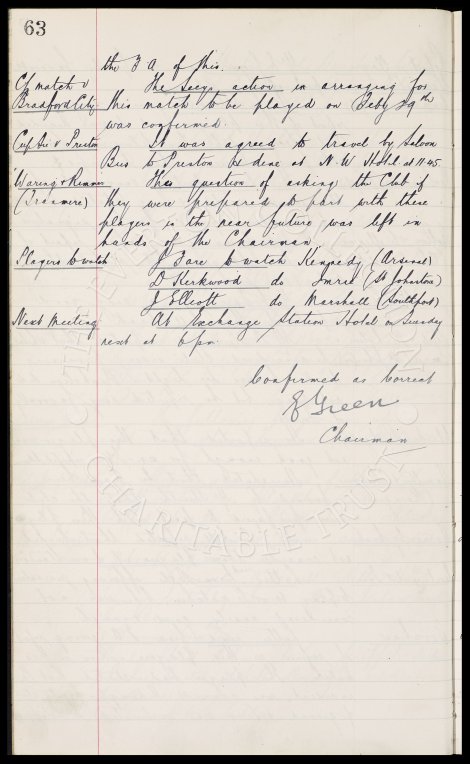 63
the F A of this.
Cf match v The Secys action in arranging for
Bradford City this match to be played on Feby 29th
was confirmed.
Cup tie v Preston It was agreed to travel by Saloon
Bus to Preston & dine at N. W Hotel at 11.45
Waring & Rimmer The question of asking the Club if
(Tranmere) they were prepared to part with these
players in the near future was left in
hands of the Chairman
Players to watch J Sare to watch Kennedy (Arsenal)
D Kirkwood do Imrie (St Johnstone)
J Elliott do Marshall (Southport)
Next Meeting At Exchange Station Hotel on Tuesday
next at 6 pm.
Confirmed as Correct
E Green
Chairman
CHARITABLE TRUST